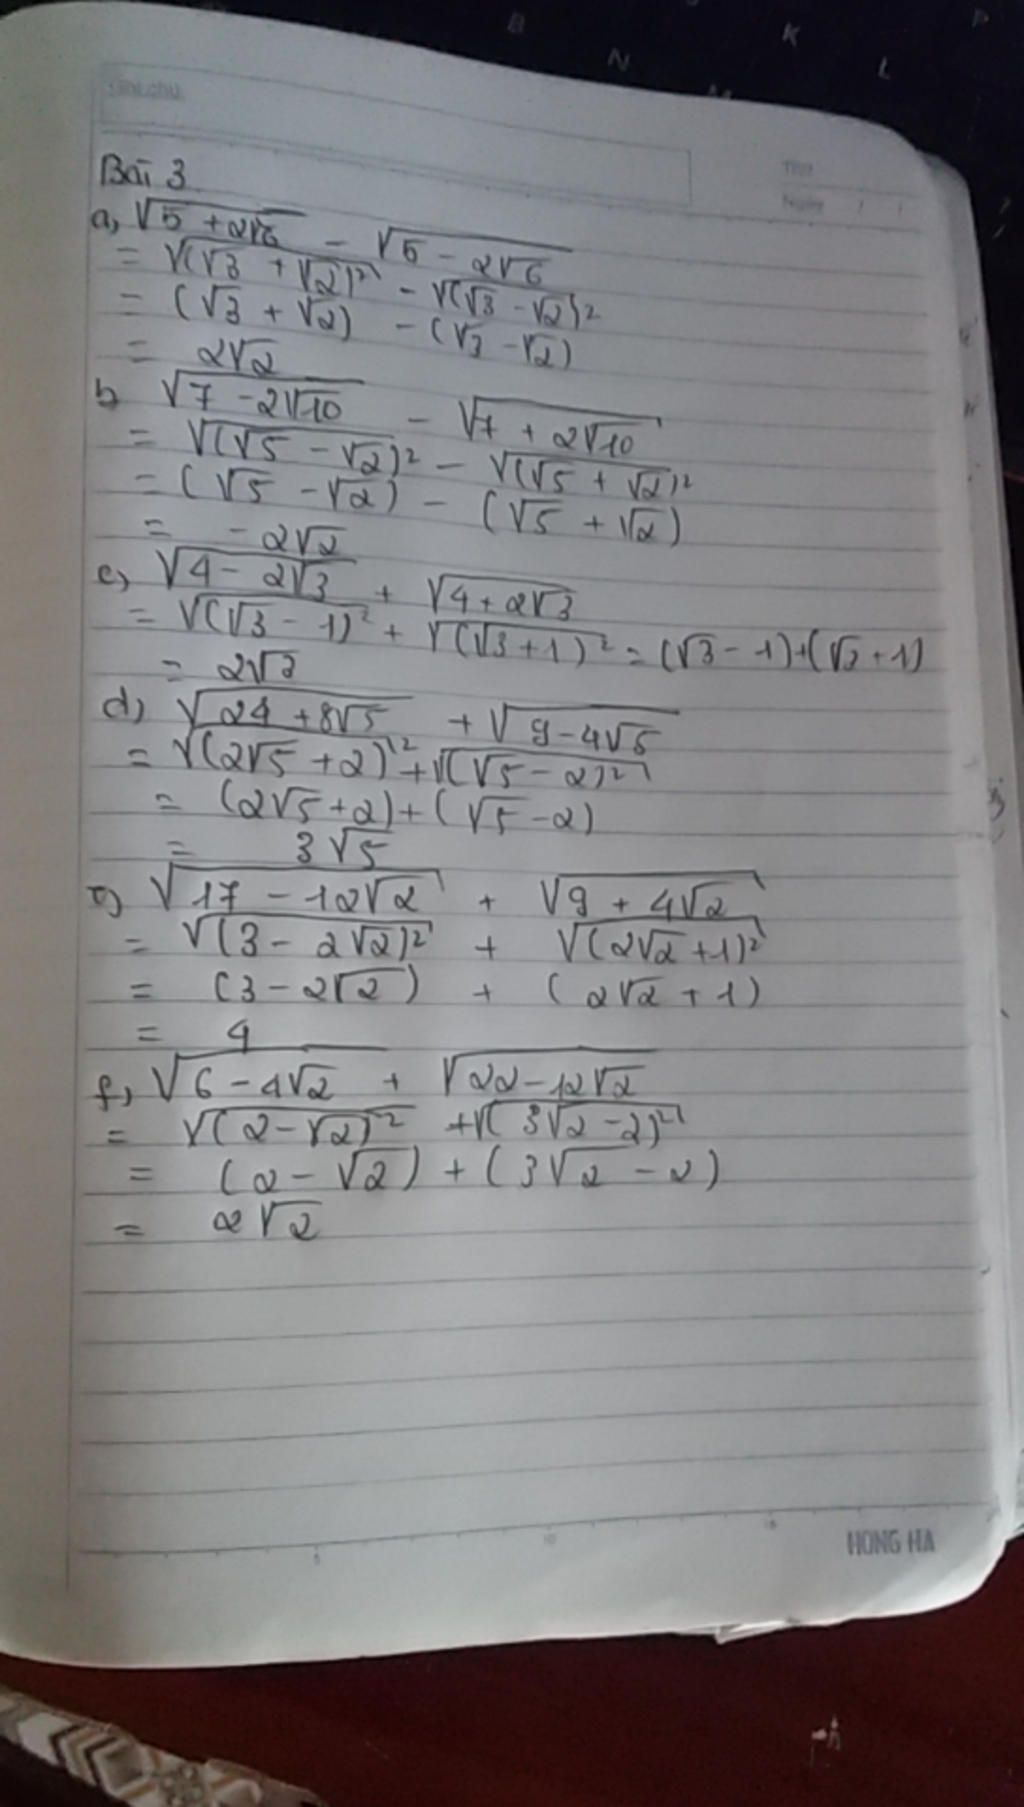 Bài 3
a, √5 + 2√6 - √5 - 2√6
= √(√3 + √2)² - √(√3 - √2)²
= (√3 + √2) - (√3 - √2)
= 2√2
b, √7 - 2√10 - √7 + 2√10
= √(√5 - √2)² - √(√5 + √2)²
= (√5 - √2) - (√5 + √2)
= -2√2
c, √4 - 2√3 + √4 + 2√3
= √(√3 - 1)² + √(√3 + 1)² = (√3 - 1) + (√3 + 1)
= 2√3
d) √24 + 8√5 + √9 - 4√5
= √(2√5 + 2)² + √(√5 - 2)²
= (2√5 + 2) + (√5 - 2)
= 3√5
e) √17 - 12√2 + √9 + 4√2
= √(3 - 2√2)² + √(2√2 + 1)²
= (3 - 2√2) + (2√2 + 1)
= 4
f, √6 - 4√2 + √22 - 12√2
= √(2 - √2)² + √(3√2 - 2)²
= (2 - √2) + (3√2 - 2)
= 2√2
HONG HA